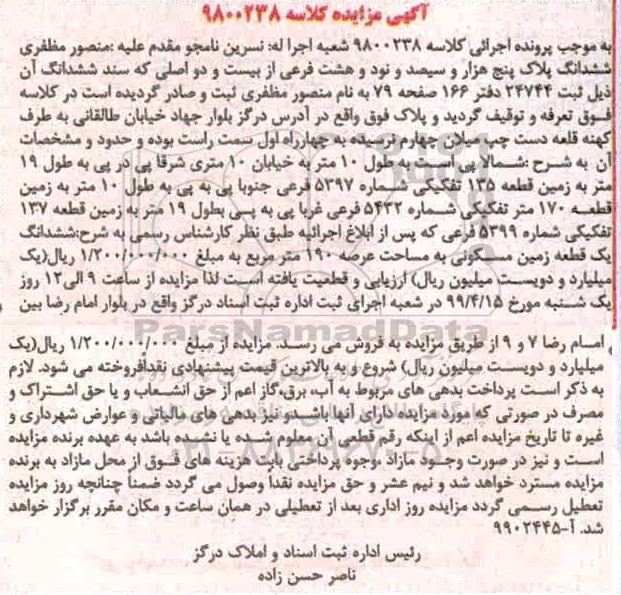 آگهی مزایده کلاسه ۹۸۰۰۲۳۸
به موجب پرونده اجرائی کلاسه ۹۸۰۰۲۳۸ شعبه اجرا له: نسرین نامجو مقدم علیه :منصور مظفری
ششدانگ پلاک پنج هزار و سیصد و نود و هشت فرعی از بیست و دو اصلی که سند ششدانگ آن
ذیل ثبت ۲۴۷۴۴ دفتر ۱۶۶ صفحه ۷۹ به نام منصور مظفری ثبت و صادر گردیده است در کلاسه
فوق تعرفه و توقیف گردید و پلاک فوق واقع در آدرس درگز بلوار جهاد خیابان طالقانی به طرف
کهنه قلعه دست چپ میلان چهارم نرسیده به چهارراه اول سمت راست بوده و حدود و مشخصات
آن به شرح :شمالا پی است به طول ۱۰ متر به خیابان ۱۰ متری شرقا پی در پی به طول ۱۹
متر به زمین قطعه ۱۳۵ تفکیکی شماره ۵۳۹۷ فرعی جنوبا پی به پی به طول ۱۰ متر به زمین
قطعه ۱۷۰ متر تفکیکی شماره ۵۴۳۲ فرعی غربا پی به پی بطول ۱۹ متر به زمین قطعه ۱۳۷
تفکیکی شماره ۵۳۹۹ فرعی که پس از ابلاغ اجرائیه طبق نظر کارشناس رسمی به شرح:ششدانگ
یک قطعه زمین مسکونی به مساحت عرصه ۱۹۰ متر مربع به مبلغ ۱/۲۰۰/۰۰۰/۰۰۰ ریال(یک
میلیارد و دویست میلیون ریال) ارزیابی و قطعیت یافته است لذا مزایده از ساعت ۹ الی۱۲ روز
یک شنبه مورخ ۹۹/۴/۱۵ در شعبه اجرای ثبت اداره ثبت اسناد درگز واقع در بلوار امام رضا بین
ParsNamadData
امام رضا ۷ و ۹ از طریق مزایده به فروش می رسد. مزایده از مبلغ ۱/۲۰۰/۰۰۰/۰۰۰ ریال(یک
میلیارد و دویست میلیون ریال) شروع و به بالاترین قیمت پیشنهادی نقدافروخته می شود. لازم
به ذکر است پرداخت بدهی های مربوط به آب، برق،گاز اعم از حق انشعاب و یا حق اشتراک و
مصرف در صورتی که مورد مزایده دارای آنها باشدو نیز بدهی های مالیاتی و عوارض شهرداری و
غیره تا تاریخ مزایده اعم از اینکه رقم قطعی آن معلوم شده یا نشده باشد به عهده برنده مزایده
است و نیز در صورت وجود مازاد ،وجوه پرداختی بابت هزینه های فوق از محل مازاد به برنده
مزایده مسترد خواهد شد و نیم عشر و حق مزایده نقدا وصول می گردد ضمناً چنانچه روز مزایده
تعطیل رسمی گردد مزایده روز اداری بعد از تعطیلی در همان ساعت و مکان مقرر برگزار خواهد
شد. آ-۹۹۰۲۴۴۵
رئیس اداره ثبت اسناد و املاک درگز
ناصر حسن زاده